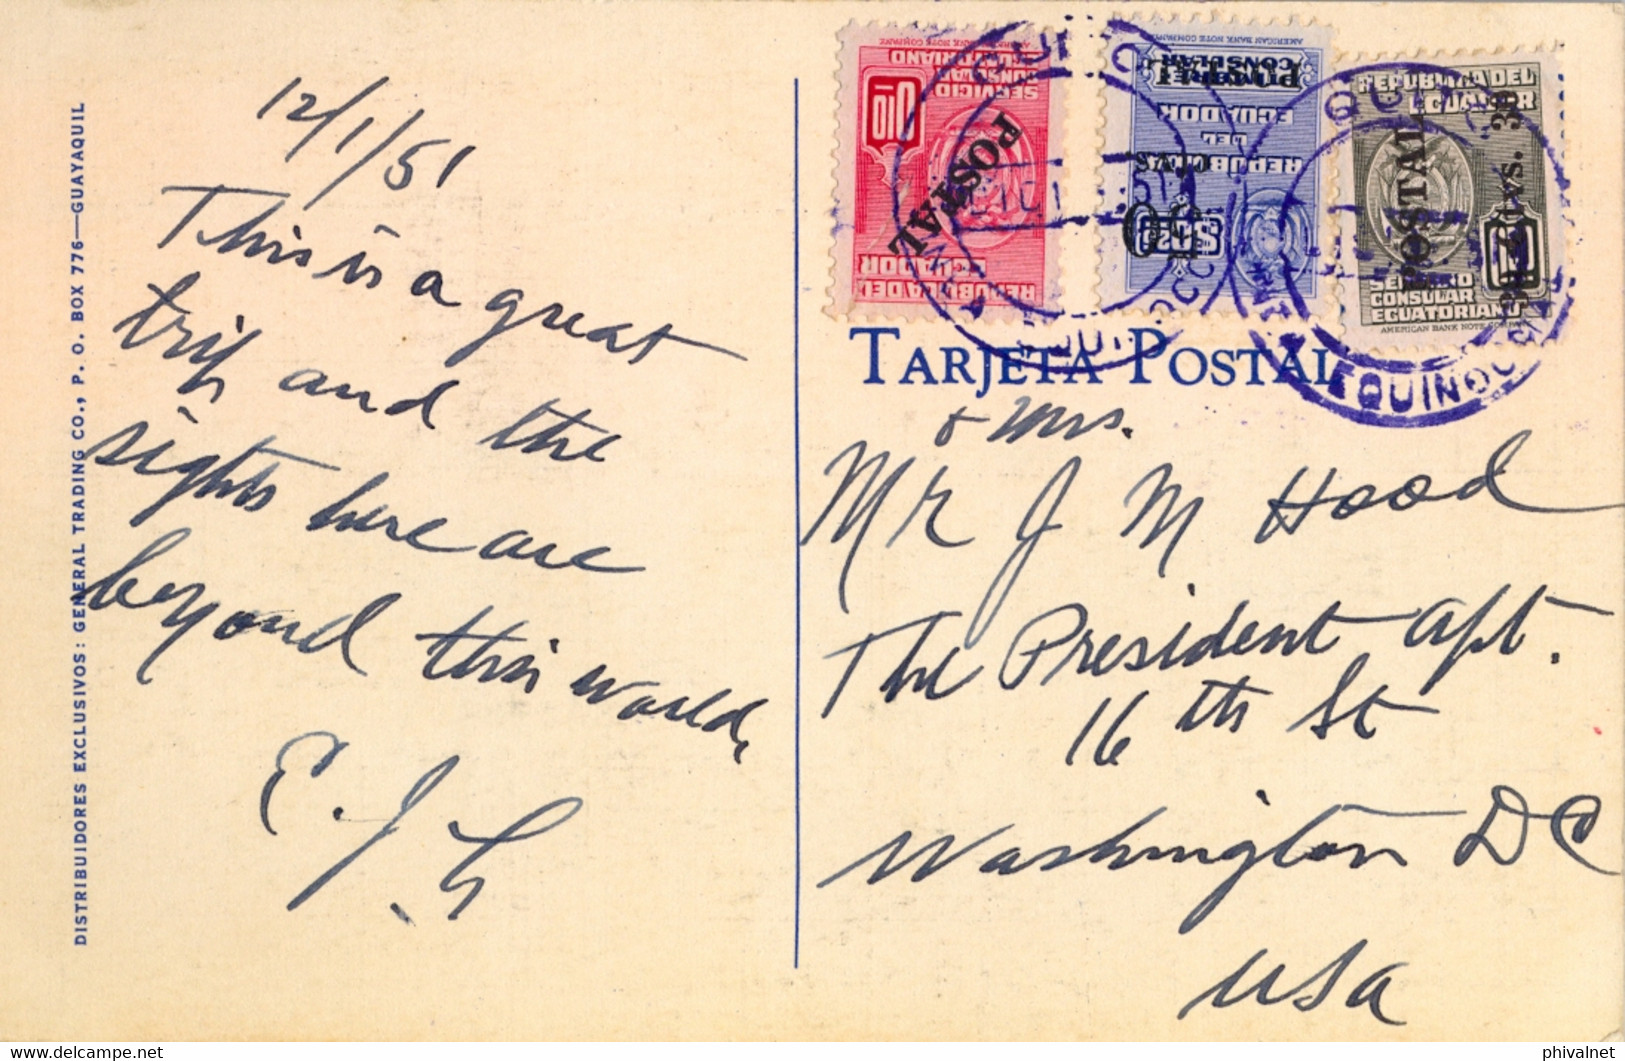 DISTRIBUIDORES EXCLUSIVOS: GENERAL TRADING CO., P. O. BOX 776—GUAYAQUIL
12/1/51
This is a great
trip and the
sights here are
beyond this world,
E. J. L
REPUBLICA DEL
ECUADOR
SERVICIO
CONSULAR
ECUATORIANO
AMERICAN BANK NOTE COMPANY
POSTAL
REPUBLICA
DEL
ECUADOR
TIMBRE
CONSULAR
AMERICAN BANK NOTE COMPANY
POSTAL
ctvs.
50
REPUBLICA DEL
ECUADOR
SERVICIO
CONSULAR
ECUATORIANO
AMERICAN BANK NOTE COMPANY
POSTAL
ctvs. 30
QUITO
QUITO
EQUINOCCIAL
TARJETA POSTAL
& Mrs.
Mr J M Hood
The President apt.
16th St
Washington DC
USA
phivalnet